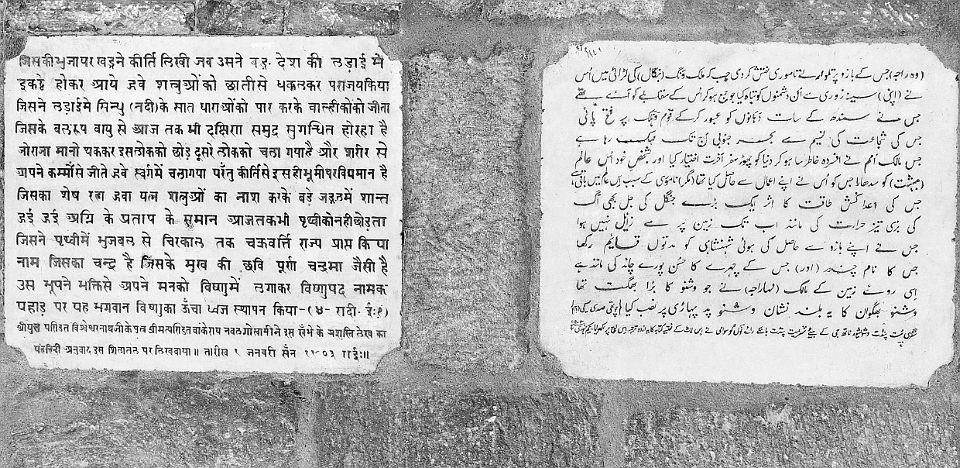 जिसकी भुजापर खड्गने कीर्ति लिखी जब उसने बङ्ग देश की लड़ाई में
इकट्ठे होकर आये हुवे शत्रुओंको छातीसे धकेलकर पराजयकिया
जिसने लड़ाईमें सिन्धु (नदी) के सात धाराओंको पार करके वाल्हीकोंको जीता
जिसके बलरूप वायु से आज तक भी दक्षिण समुद्र सुगन्धित होरहा है
जोराजा मानो थककर इसलोकको छोड़ दूसरे लोकको चला गयाहै और शरीर से
अपने कर्म्मोंसे जीते हुवे स्वर्गमें चलागया परंतु कीर्तिसे इसही भूमीपर विद्यमान है
जिसका शेष रहा हुवा यत्न शत्रुओं का नाश करके बड़े जङ्गलमें शान्त
हुई हुई अग्नि के प्रताप के समान आजतकभी पृथ्वीकोनहींछोड़ता
जिसने पृथ्वीमें भुजबल से चिरकाल तक चक्रवर्त्ति राज्य प्राप्त किया
नाम जिसका चन्द्र है जिसके मुख की छवि पूर्ण चन्द्रमा जैसी है
उस भूपने भक्तिसे अपने मनको विष्णुमें लगाकर विष्णुपद नामक
पहाड़ पर यह भगवान विष्णुका ऊँचा ध्वज स्थापन किया-(४- शदी- ई:)
श्रीयुत पण्डित विश्वेश्वरनाथजीके पुत्र श्रीमत्पण्डित बांकेराय नवलगोस्वामीने इस खँभे के प्रशस्ति लेख का
यहहिंदी अनुवाद इस शिलातल पर लिखवाया॥ तारीख १ जनवरी सँन १९०३ ईई॥
(وہ راجہ) جس کے بازو پر تلوار نے ناموری نقش کر دی جب کہ ملک ونگ (بنگال) کی لڑائی میں اُس
نے (اپنی) سینہ زوری سے اُن دشمنوں کو تباہ کیا جو جمع ہو کر اُس کے مقابلے کو آئے تھے
جس نے سندھ کے سات دہانوں کو عبور کر کے قوم پر فتح پائی
جس کی شجاعت کی نسیم سے بحر جنوبی آج تک مہک رہا ہے
جس مالک اُمم نے افسردہ خاطر سا ہو کر دنیا کو چھوڑ سفر آخرت اختیار کیا اور بشخص خود اُس عالم
(بہشت) کو سدھارا جس کو اُس نے اپنے اعمال سے حاصل کیا تھا (مگر) ناموری کے سبب اِس عالم میں باقی ہے
جس کی دشمن کش طاقت کا اثر ایک بڑے جنگل کی جل بجھی آگ
کی بڑی تیز حرارت کی مانند اب تک زمین پر سے زایل نہیں ہوا
جس نے اپنے بازو سے حاصل کی ہوئی شہنشاہی کو مدتوں قایم رکھا
جس کا نام چندر (اور) جس کے چہرے کا حسن پورے چاند کی مانند ہے
اِسی روئے زمین کے مالک (مہاراجہ) نے جو وشنو کا بڑا بھگت تھا
وشنو بھگوان کا یہ بلند نشان وشنو پد پہاڑی پر نصب کیا